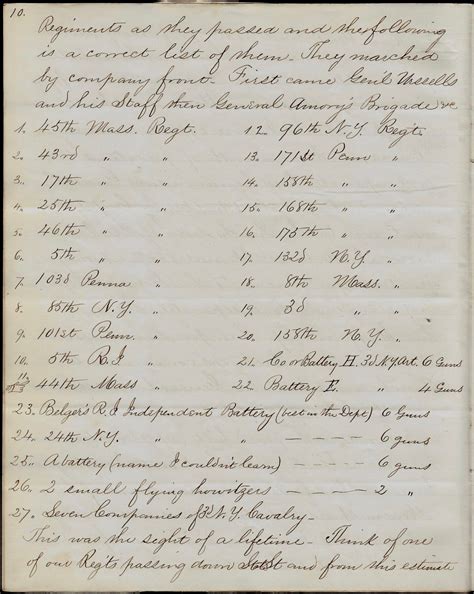 10.
Regiments as they passed and the following
is a correct list of them - They marched
by company front - First came Gen'l Wessells
and his Staff then General Amory's Brigade &c
1. 45th Mass. Regt. 12. 96th N.Y. Reg't.
2. 43rd " " 13. 171st Penn "
3. 17th " " 14. 158th " "
4. 25th " " 15. 168th " "
5. 46th " " 16. 175th " "
6. 5th " " 17. 132d N.Y. "
7. 103d Penna " 18. 8th Mass. "
8. 85th N.Y. " 19. 3d " "
9. 101st Penn. " 20. 158th N.Y. "
10. 5th R.I " 21. Co or Battery H. 3d N.Y. Art. 6 Guns
11. 44th Mass " 22. Battery E. " 4 Guns
23. Belger's R.I Independent Battery (best in the Dept) 6 Guns
24. 24th N.Y. " - - - - 6 guns
25. A battery (name I couldn't learn) - - - 6 guns
26. 2 small flying howitzers - - - 2 "
27. Seven Companies of N.Y. Cavalry -
This was the sight of a lifetime - Think of one
of our Reg'ts passing down St and from this estimate